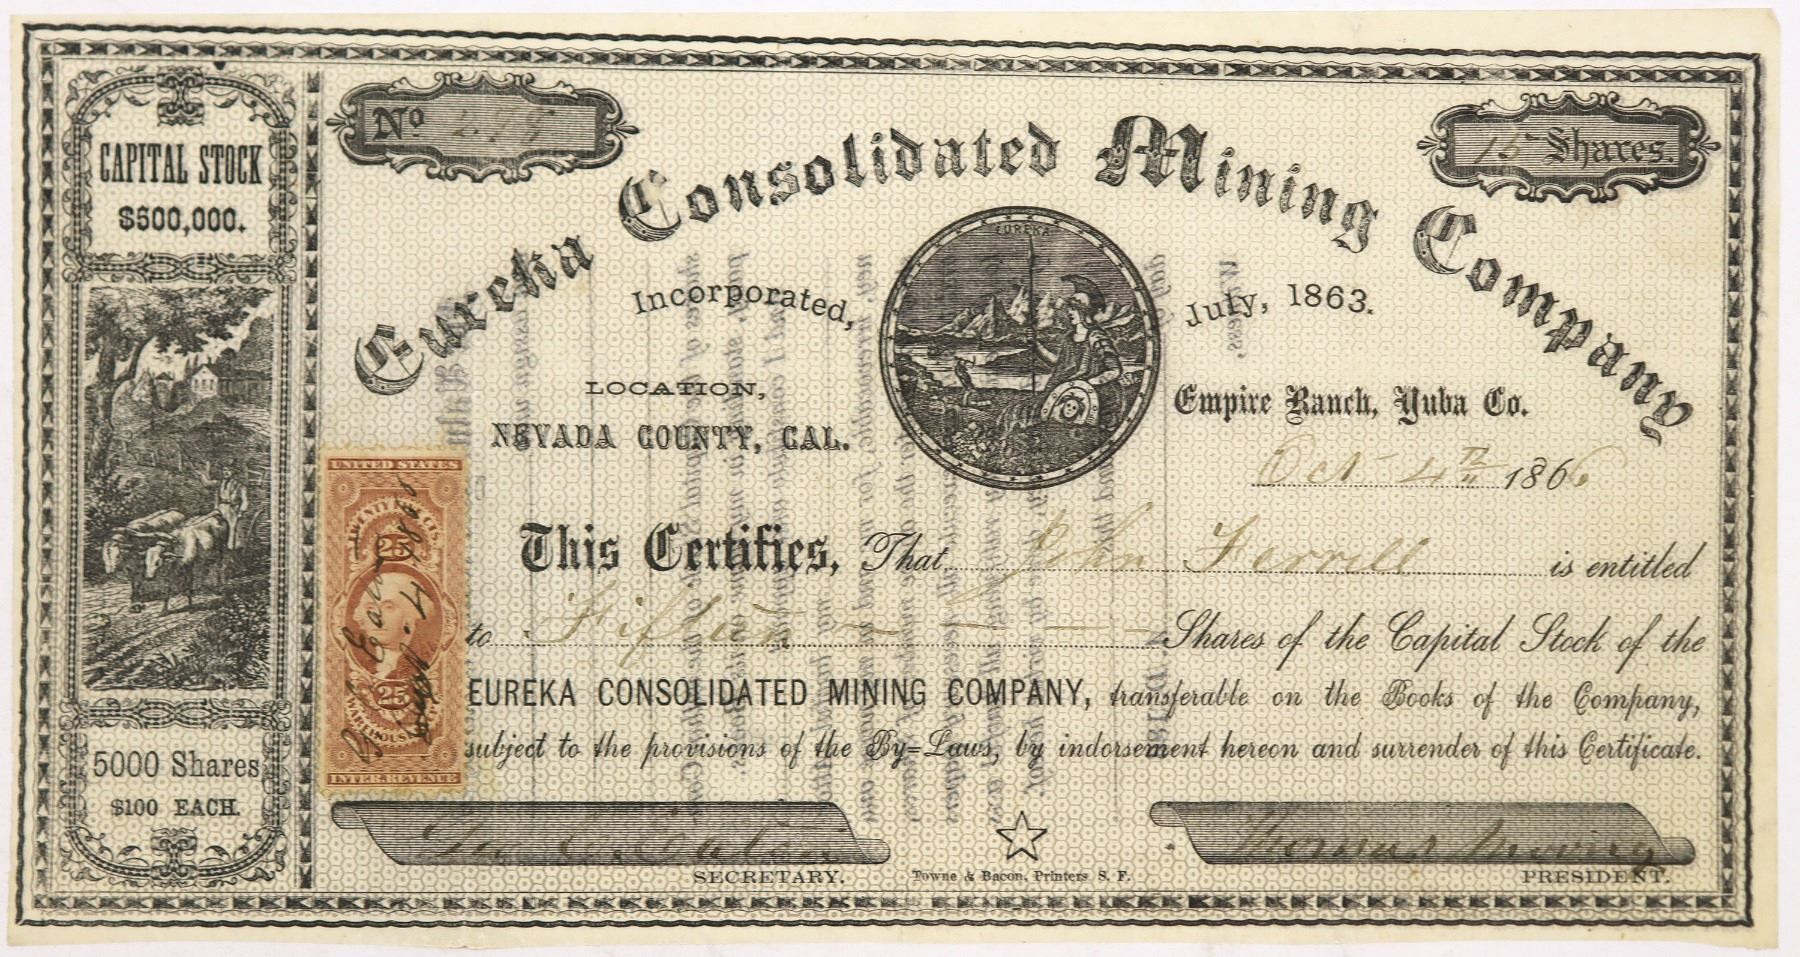 CAPITAL STOCK
$500,000.
5000 Shares
$100 EACH.
No 299
15 Shares.
Eureka Consolidated Mining Company
Incorporated, July, 1863.
EUREKA
LOCATION,
NEVADA COUNTY, CAL.
Empire Ranch, Yuba Co.
Oct 4th 1866
This Certifies, That John Ferrell is entitled
to Fifteen Shares of the Capital Stock of the
EUREKA CONSOLIDATED MINING COMPANY, transferable on the Books of the Company,
subject to the provisions of the By=Laws, by indorsement hereon and surrender of this Certificate.
UNITED STATES
TWENTY FIVE CTS.
25
25
WAREHOUSE
INTER. REVENUE
Geo. C. Eaton
SECRETARY.
Towne & Bacon, Printers S. F.
Thomas
PRESIDENT.